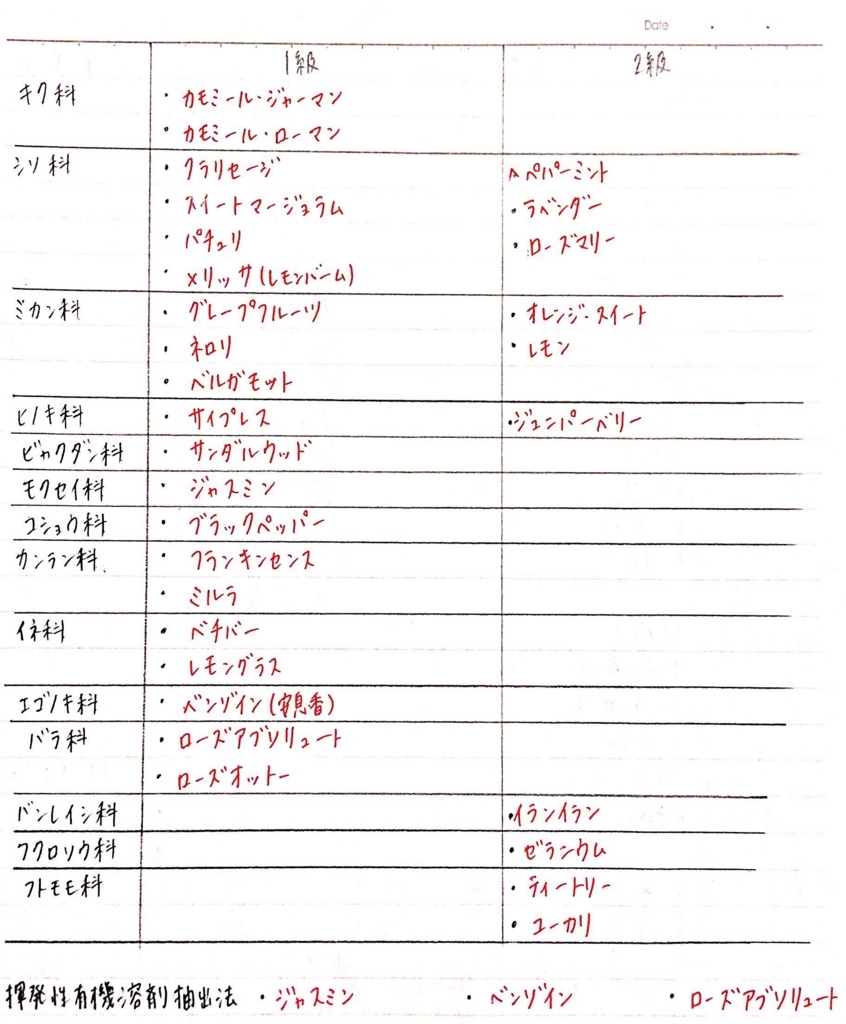 Date
1級 2級
キク科 ・カモミール・ジャーマン
・カモミール・ローマン
シソ科 ・クラリセージ ・ペパーミント
・スイートマージョラム ・ラベンダー
・パチュリ ・ローズマリー
・メリッサ(レモンバーム)
ミカン科 ・グレープフルーツ ・オレンジ・スイート
・ネロリ ・レモン
・ベルガモット
ヒノキ科 ・サイプレス ・ジュニパーベリー
ビャクダン科 ・サンダルウッド
モクセイ科 ・ジャスミン
コショウ科 ・ブラックペッパー
カンラン科 ・フランキンセンス
・ミルラ
イネ科 ・ベチバー
・レモングラス
エゴノキ科 ・ベンゾイン(安息香)
バラ科 ・ローズアブソリュート
・ローズオットー
バンレイシ科 ・イランイラン
フクロソウ科 ・ゼラニウム
フトモモ科 ・ティートリー
・ユーカリ
揮発性有機溶剤抽出法 ・ジャスミン ・ベンゾイン ・ローズアブソリュート